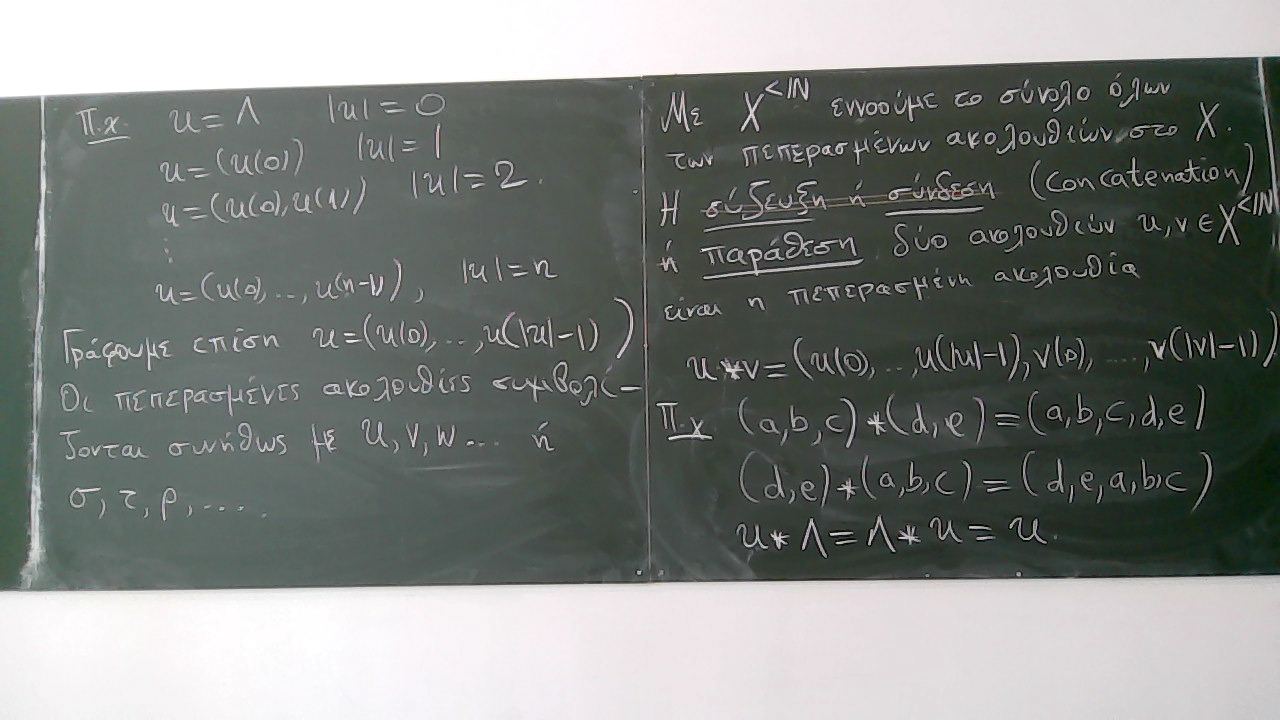 Π.χ u = Λ |u| = 0
u = (u(0)) |u| = 1
u = (u(0), u(1)) |u| = 2.
⋮
u = (u(0), .., u(n-1)), |u| = n
Γράφουμε επίση u = (u(0), .., u(|u|-1))
Οι πεπερασμένες ακολουθίες συμβολί-
ζονται συνήθως με u, v, w... ή
σ, τ, ρ, ....
Με X^{<ℕ} εννοούμε το σύνολο όλων
των πεπερασμένων ακολουθιών στο X.
Η σύζευξη ή σύνδεση (concatenation)
ή παράθεση δύο ακολουθιών u, v ∈ X^{<ℕ}
είναι η πεπερασμένη ακολουθία
u * v = (u(0), .., u(|u|-1), v(0), ..., v(|v|-1))
Π.χ (a,b,c) * (d,e) = (a,b,c,d,e)
(d,e) * (a,b,c) = (d,e,a,b,c)
u * Λ = Λ * u = u.